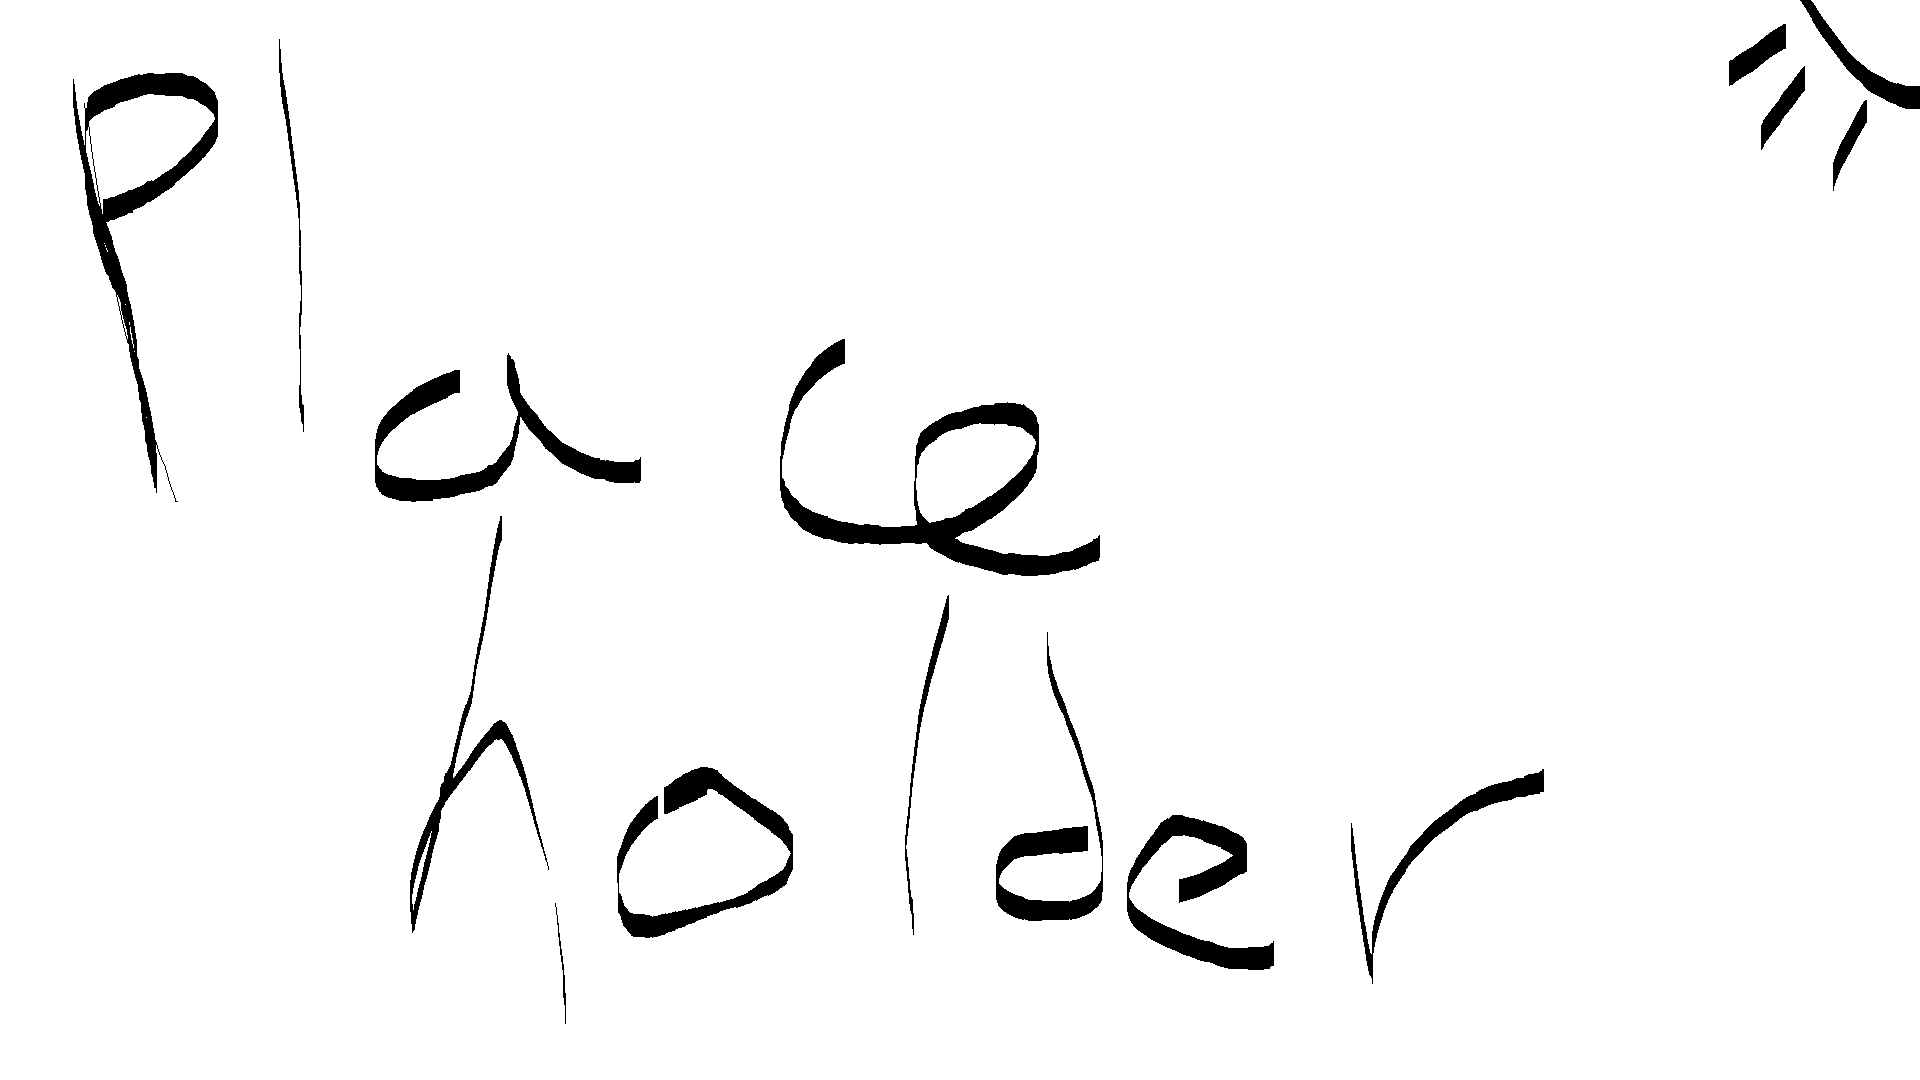 Place
holder